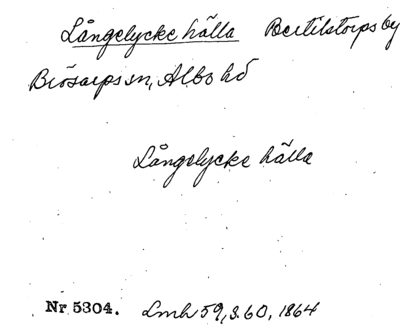 Långelycke hälla Bertilstorps by
Brösarps sn, Albo hd
Långelycke hälla
Nr 5304. Lmh 59, S. 60, 1864